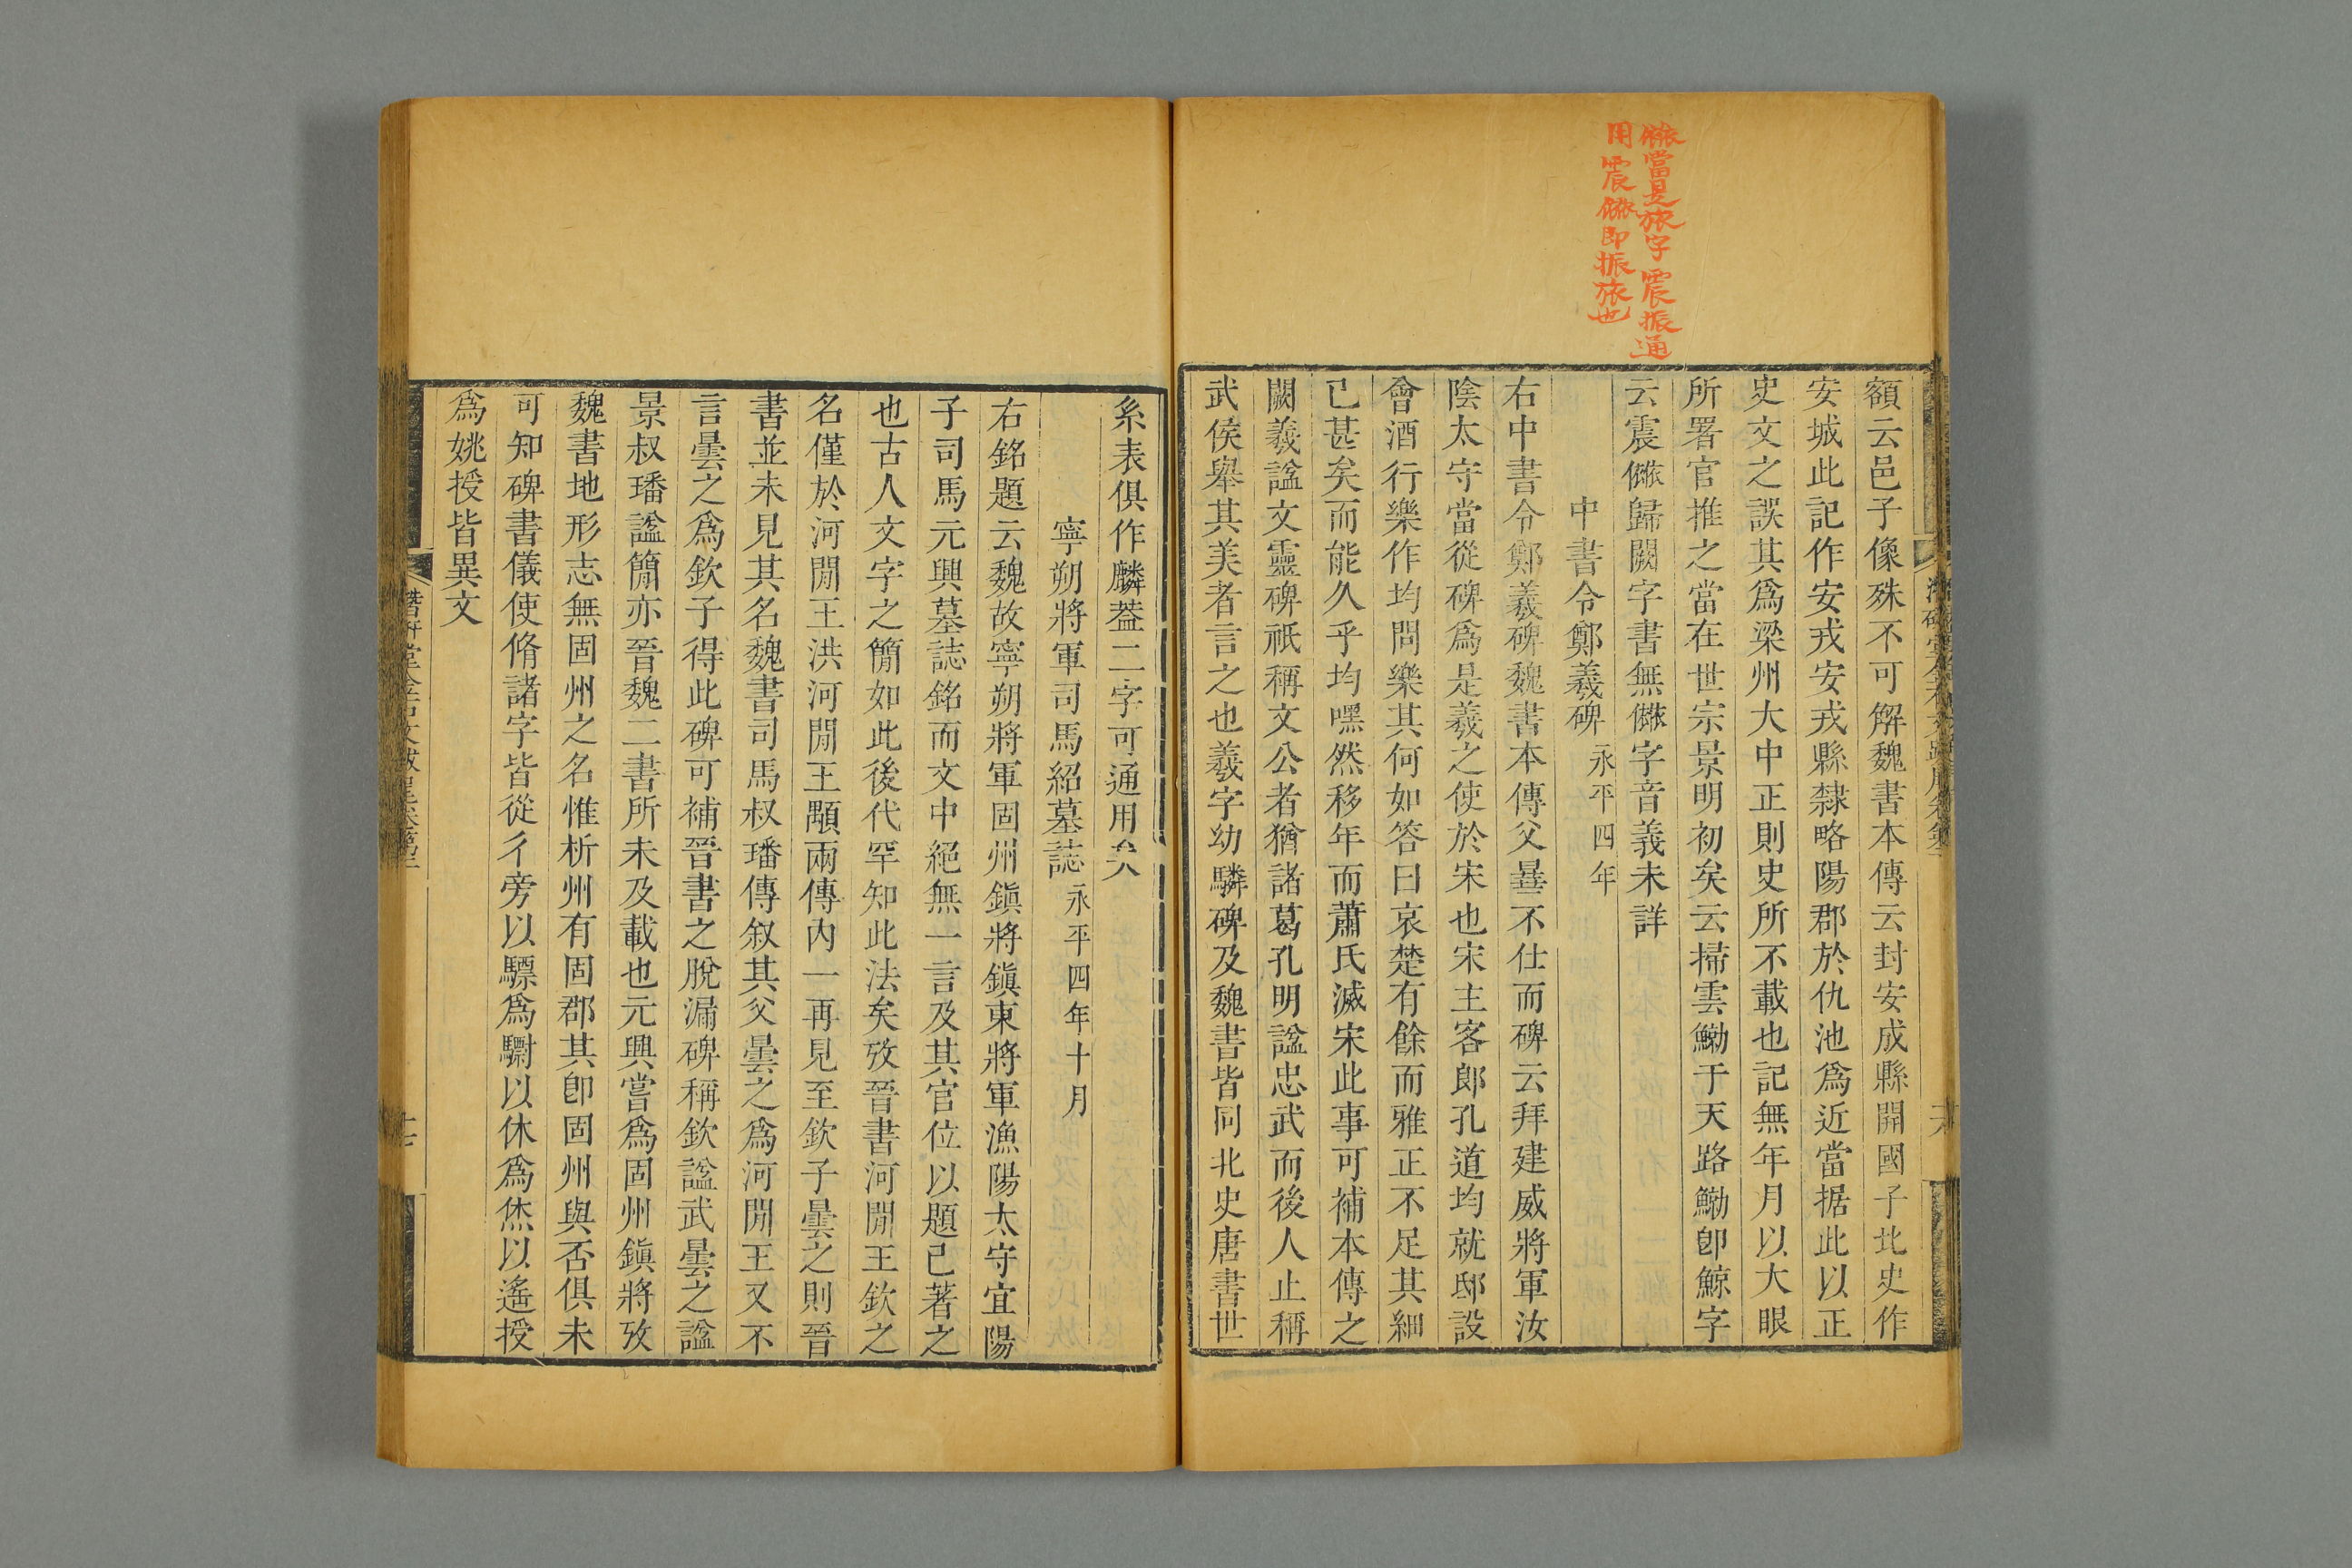 𠌯當是旅字震振通
用震𠌯即振旅也
額云邑子像殊不可解魏書本傳云封安成縣開國子北史作
安城此記作安戎安戎縣隸略陽郡於仇池爲近當据此以正
史文之誤其爲梁州大中正則史所不載也記無年月以大眼
所署官推之當在世宗景明初矣云掃雲鯏于天路鯏卽鯨字
云震𠌯歸闕字書無𠌯字音義未詳
中書令鄭羲碑永平四年
右中書令鄭羲碑魏書本傳父曅不仕而碑云拜建威將軍汝
陰太守當從碑爲是羲之使於宋也宋主客郎孔道均就邸設
會酒行樂作均問樂其何如答曰哀楚有餘而雅正不足其細
已甚矣而能久乎均嘿然移年而蕭氏滅宋此事可補本傳之
闕羲諡文靈碑祇稱文公者猶諸葛孔明諡忠武而後人止稱
武侯舉其美者言之也羲字幼驎碑及魏書皆同北史唐書世
系表俱作麟葢二字可通用
寧朔將軍司馬紹墓誌永平四年十月
右銘題云魏故寧朔將軍固州鎭將鎭東將軍漁陽太守宜陽
子司馬元興墓誌銘而文中絕無一言及其官位以題已著之
也古人文字之簡如此後代罕知此法矣攷晉書河閒王欽之
名僅於河閒王洪河閒王顒兩傳內一再見至欽子曇之則晉
書並未見其名魏書司馬叔璠傳叙其父曇之爲河閒王又不
言曇之爲欽子得此碑可補晉書之脫漏碑稱欽諡武曇之諡
景叔璠諡簡亦晉魏二書所未及載也元興嘗爲固州鎭將攷
魏書地形志無固州之名惟析州有固郡其卽固州與否俱未
可知碑書儀使脩諸字皆從彳旁以驃爲驧以休爲烋以遙授
爲姚授皆異文